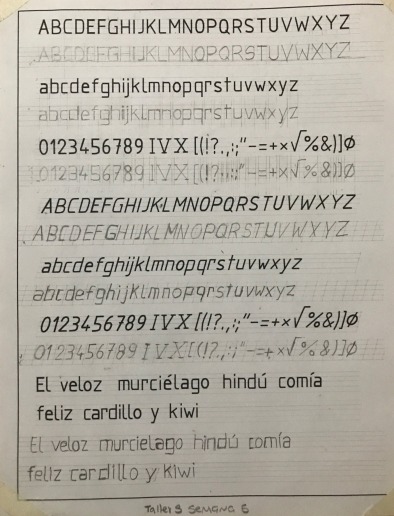 ABCDEFGHIJKLMNOPQRSTUVWXYZ
ABCDEFGHIJKLMNOPQRSTUVWXYZ
abcdefghijklmnopqrstuvwxyz
abcdefghijklmnopqrstuvwxyz
0123456789 IVX [(!?.,:;"-=+×√%&)]Ø
0123456789 IVX [(!?.,:;"-=+×√%&)]Ø
ABCDEFGHIJKLMNOPQRSTUVWXYZ
ABCDEFGHIJKLMNOPQRSTUVWXYZ
abcdefghijklmnopqrstuvwxyz
abcdefghijklmnopqrstuvwxyz
0123456789 IVX [(!?.,:;"-=+×√%&)]Ø
0123456789 IVX [(!?.,:;"-=+×√%&)]Ø
El veloz murciélago hindú comía
feliz cardillo y kiwi
El veloz murcielago hindú comía
feliz cardillo y kiwi
Taller 3 SEMANA 6